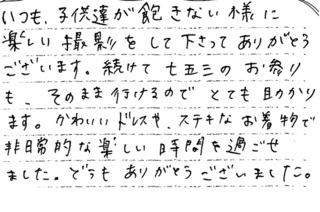 いつも、子供達が飽きない様に
楽しい撮影をして下さってありがとう
ございます。続けて七五三のお祭り
も、そのまま行けるのでとても助かり
ます。かわいいドレスや、ステキなお着物で
非日常的な楽しい時間を過ごせ
ました。どうもありがとうございました。